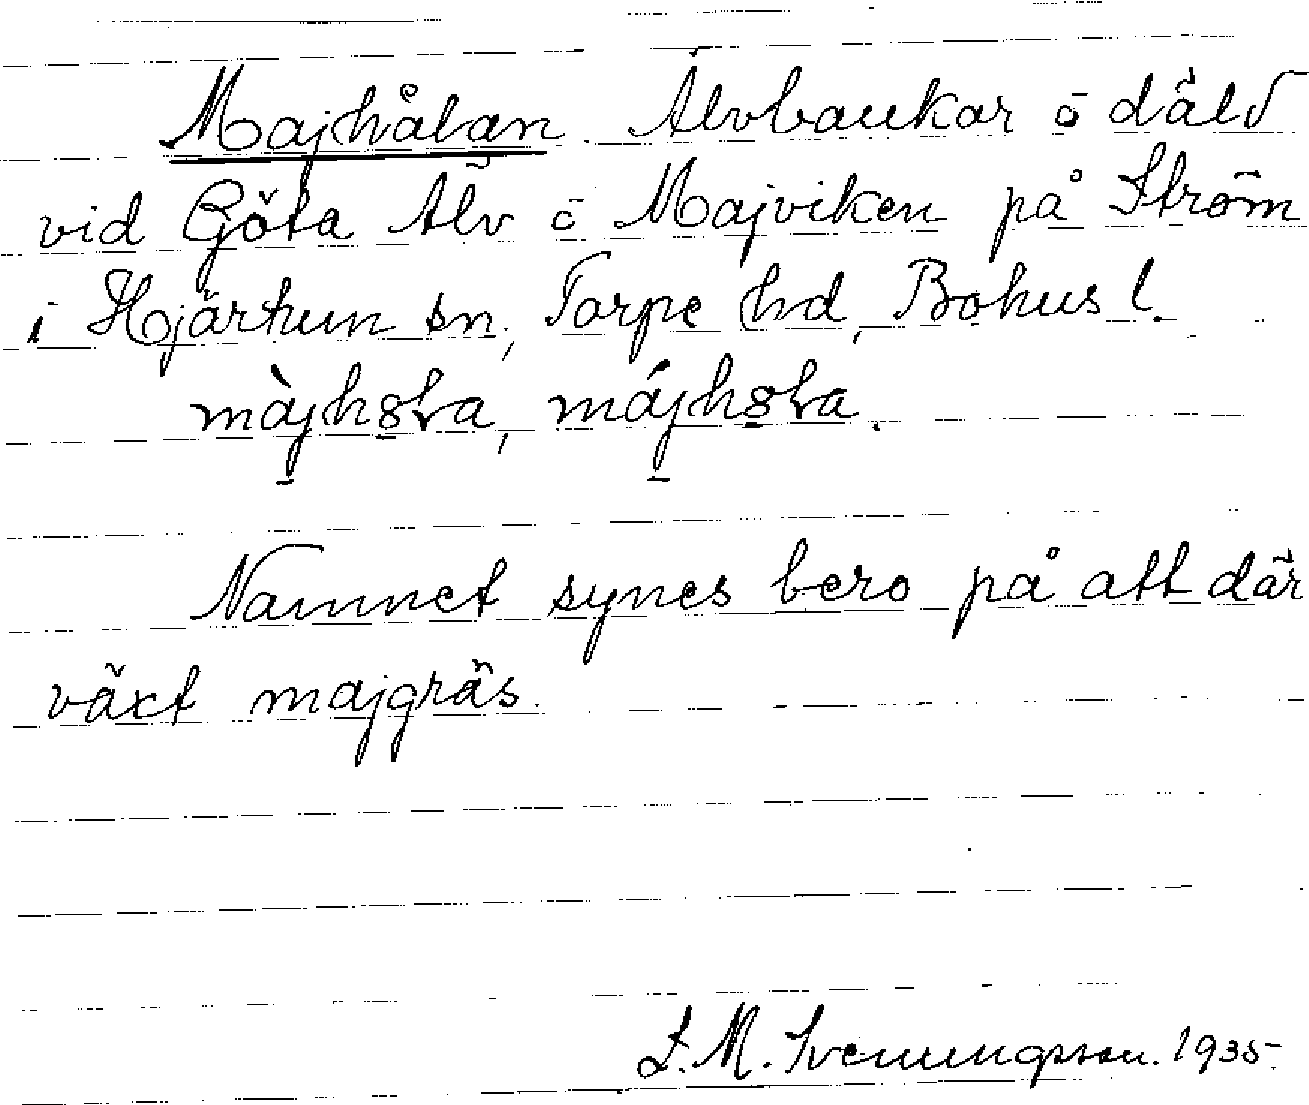 Majhålan Älvbankar ö däld
vid Göta Älv ö Majviken på Ström
i Hjärtum sn, Torpe hd, Bohusl.
màjhꝏla, májhꝏla.
Namnet synes bero på att där
växt majgräs.
L. M. Svenungsson. 1935.